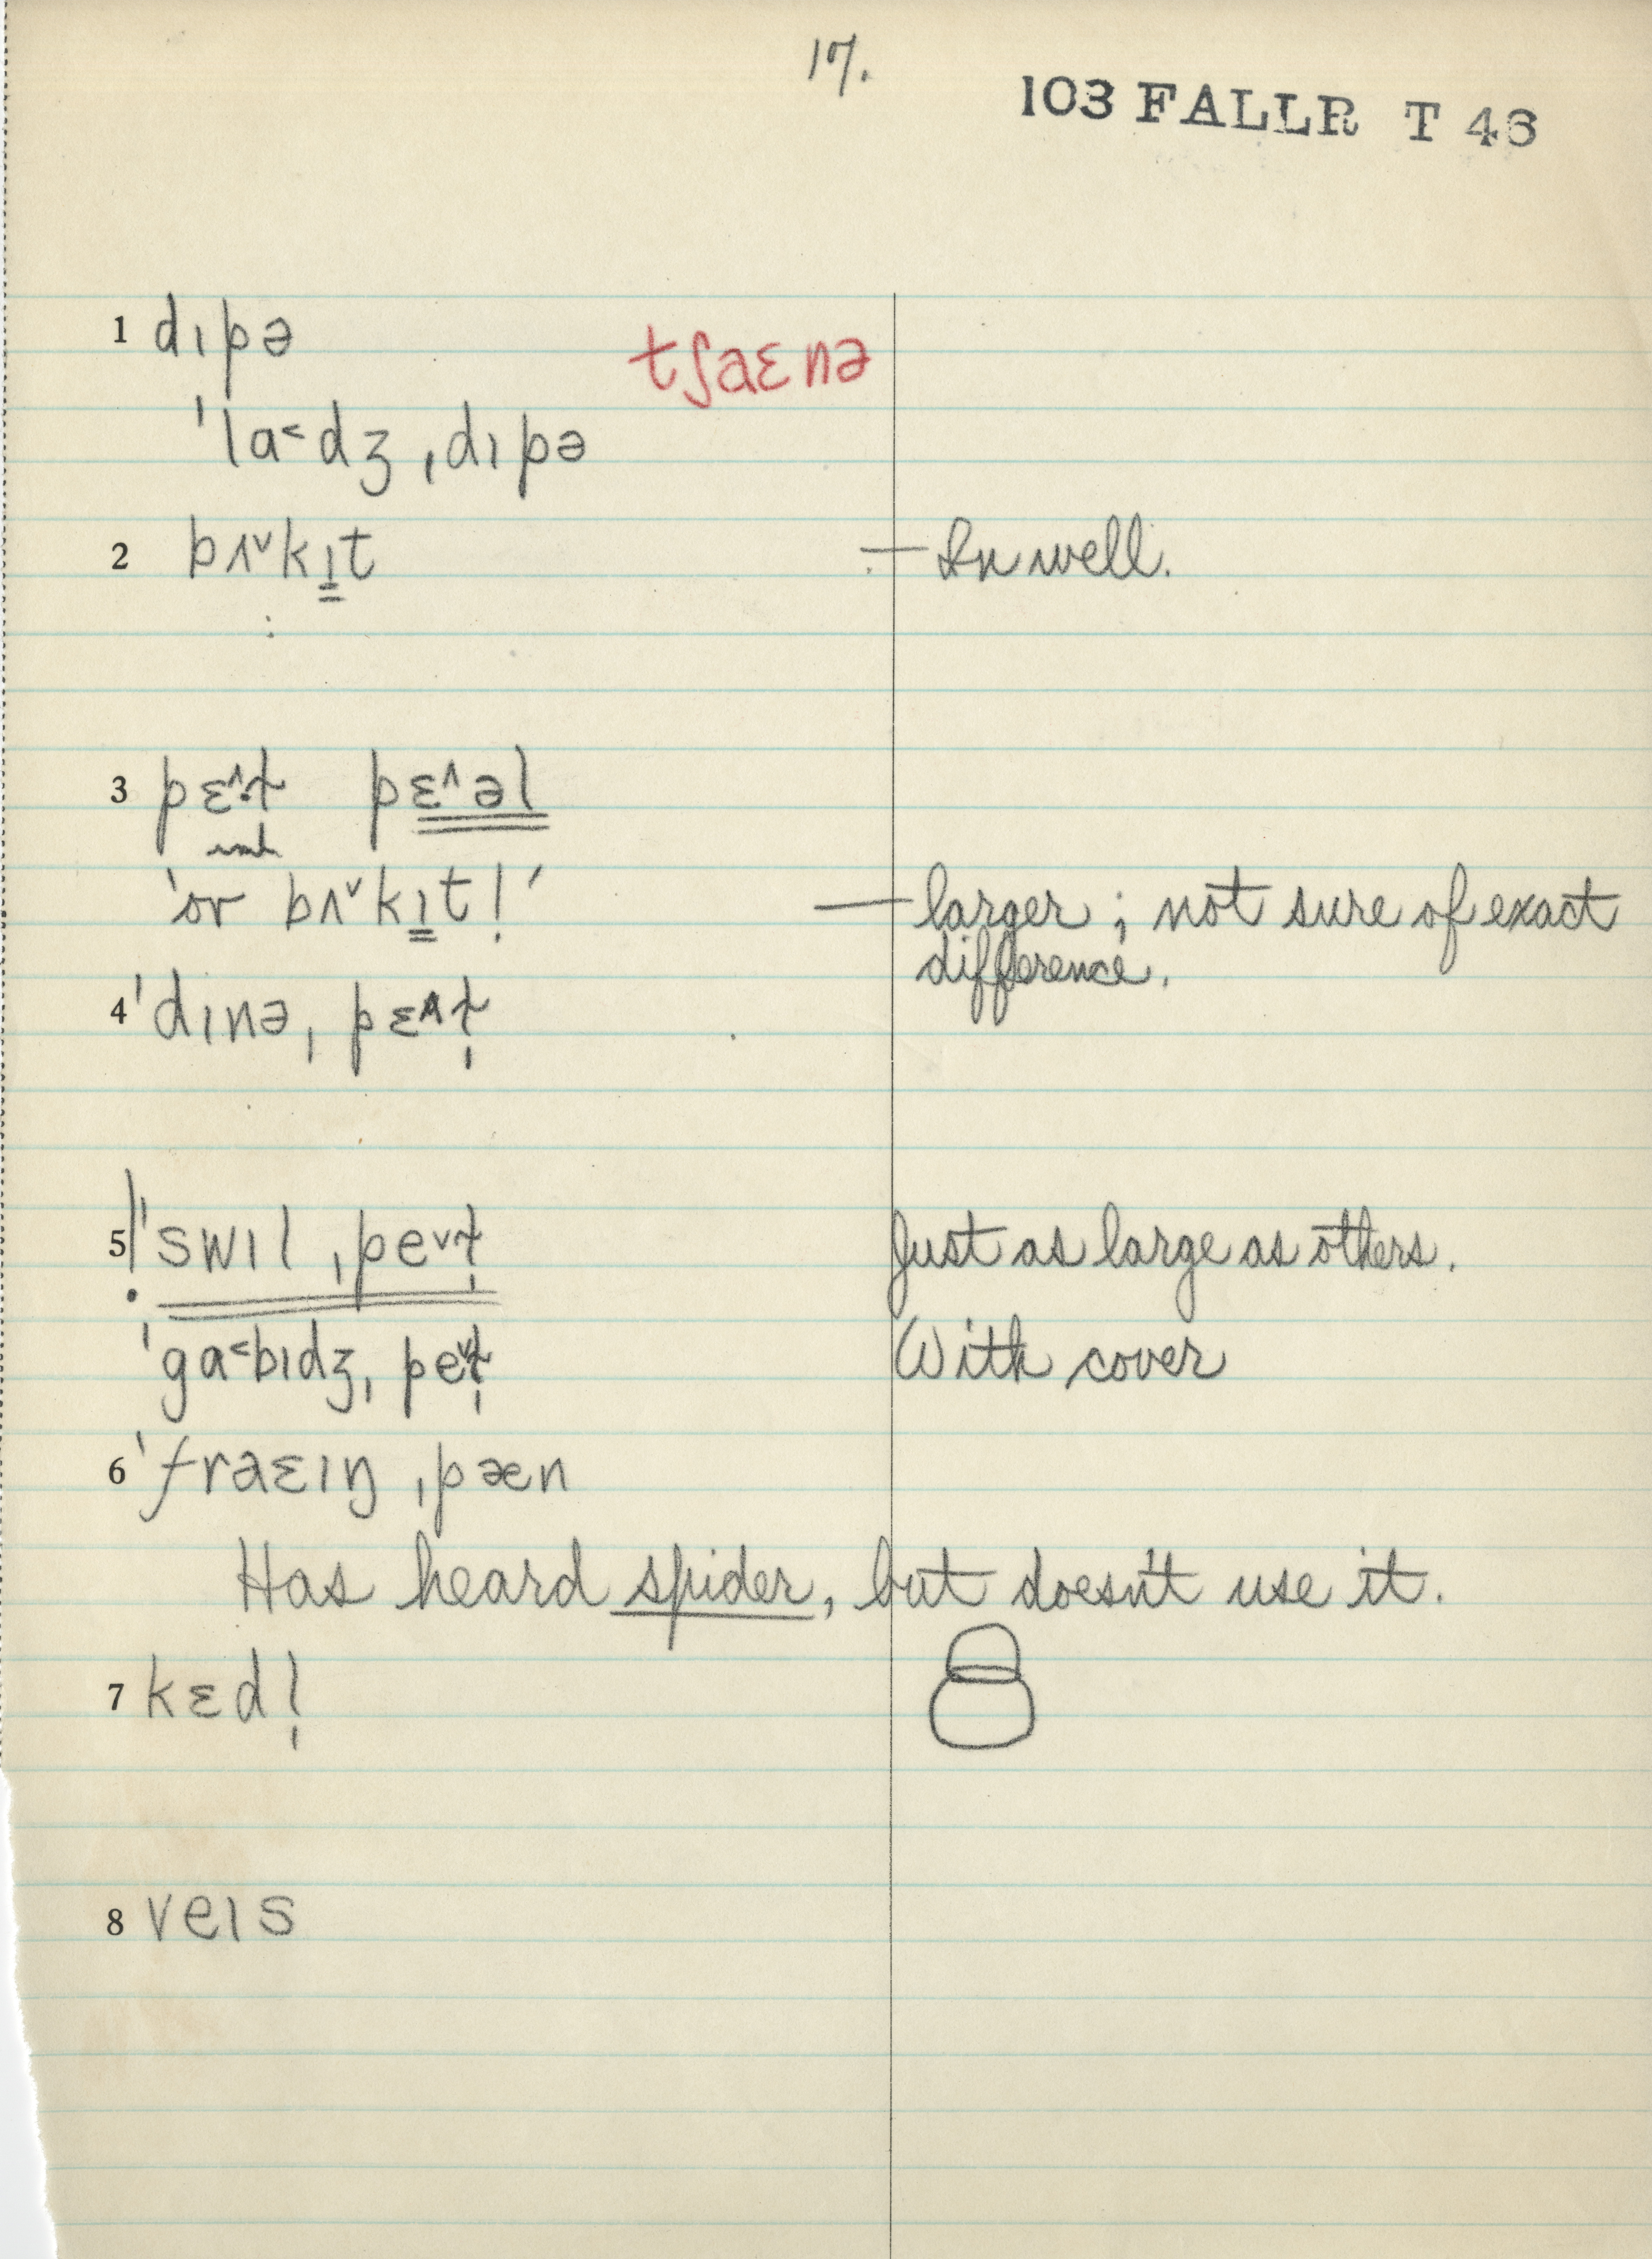 17.
103 FALLR T 46
1 dɪpə
tʃaɛnə
ˈla˂dʒ ˌdɪpə
2 bʌ˅kɪt — In well.
3 pɛ˄ɫ pɛ˄əl
'or bʌ˅kɪt!' — larger; not sure of exact
difference.
4 ˈdɪnə ˌpɛ˄ɫ̩
5 ˈswɪl ˌpe˅ɫ̩ Just as large as others.
ˈga˂bɪdʒ ˌpe˅ɫ̩ With cover
6 ˈfraɛɪŋ ˌpæn
Has heard spider, but doesn't use it.
7 kɛdl̩
8 veɪs